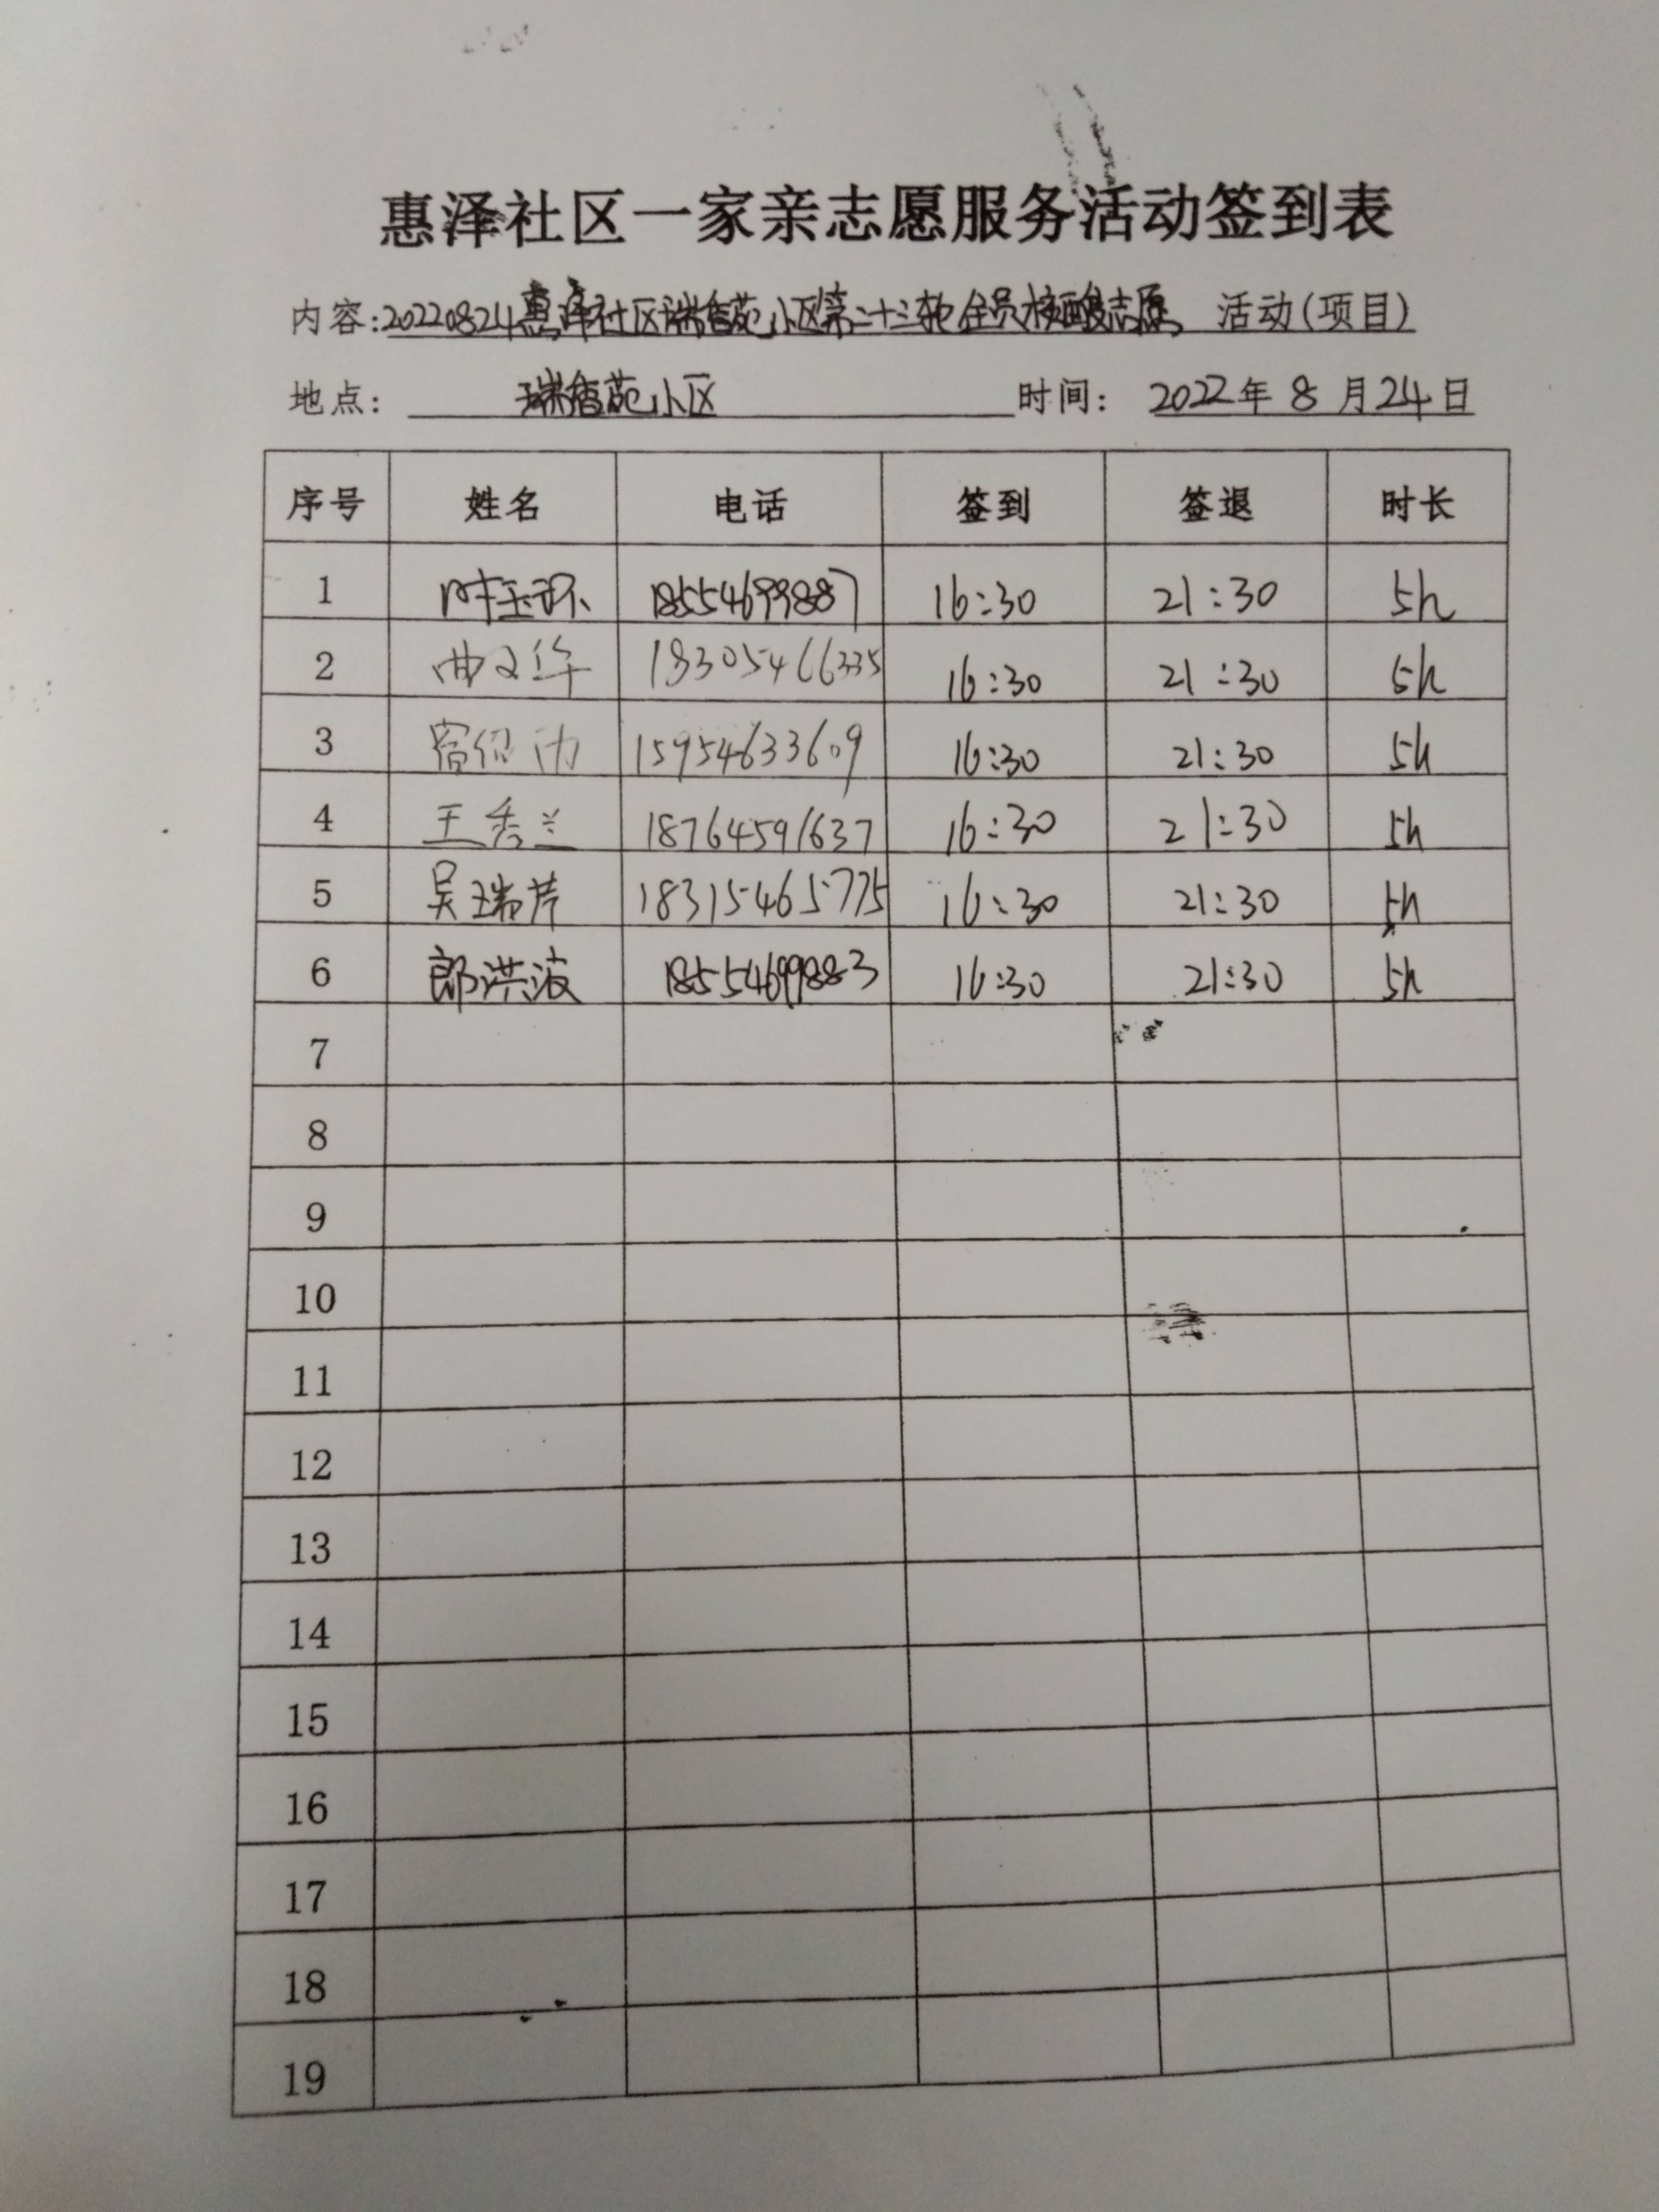 惠泽社区一家亲志愿服务活动签到表
内容:20220824惠泽社区瑞香苑小区第二十三轮全员核酸志愿 活动(项目)
地点: 瑞香苑小区 时间: 2022年8月24日
序号 姓名 电话 签到 签退 时长
1 时玉环 18554699887 16:30 21:30 5h
2 曲文华 18305466335 16:30 21:30 5h
3 15954633609 16:30 21:30 5h
4 王秀兰 18764591637 16:30 21:30 5h
5 吴瑞芹 18315465775 16:30 21:30 5h
6 郎洪波 18554699883 16:30 21:30 5h
7
8
9
10
11
12
13
14
15
16
17
18
19